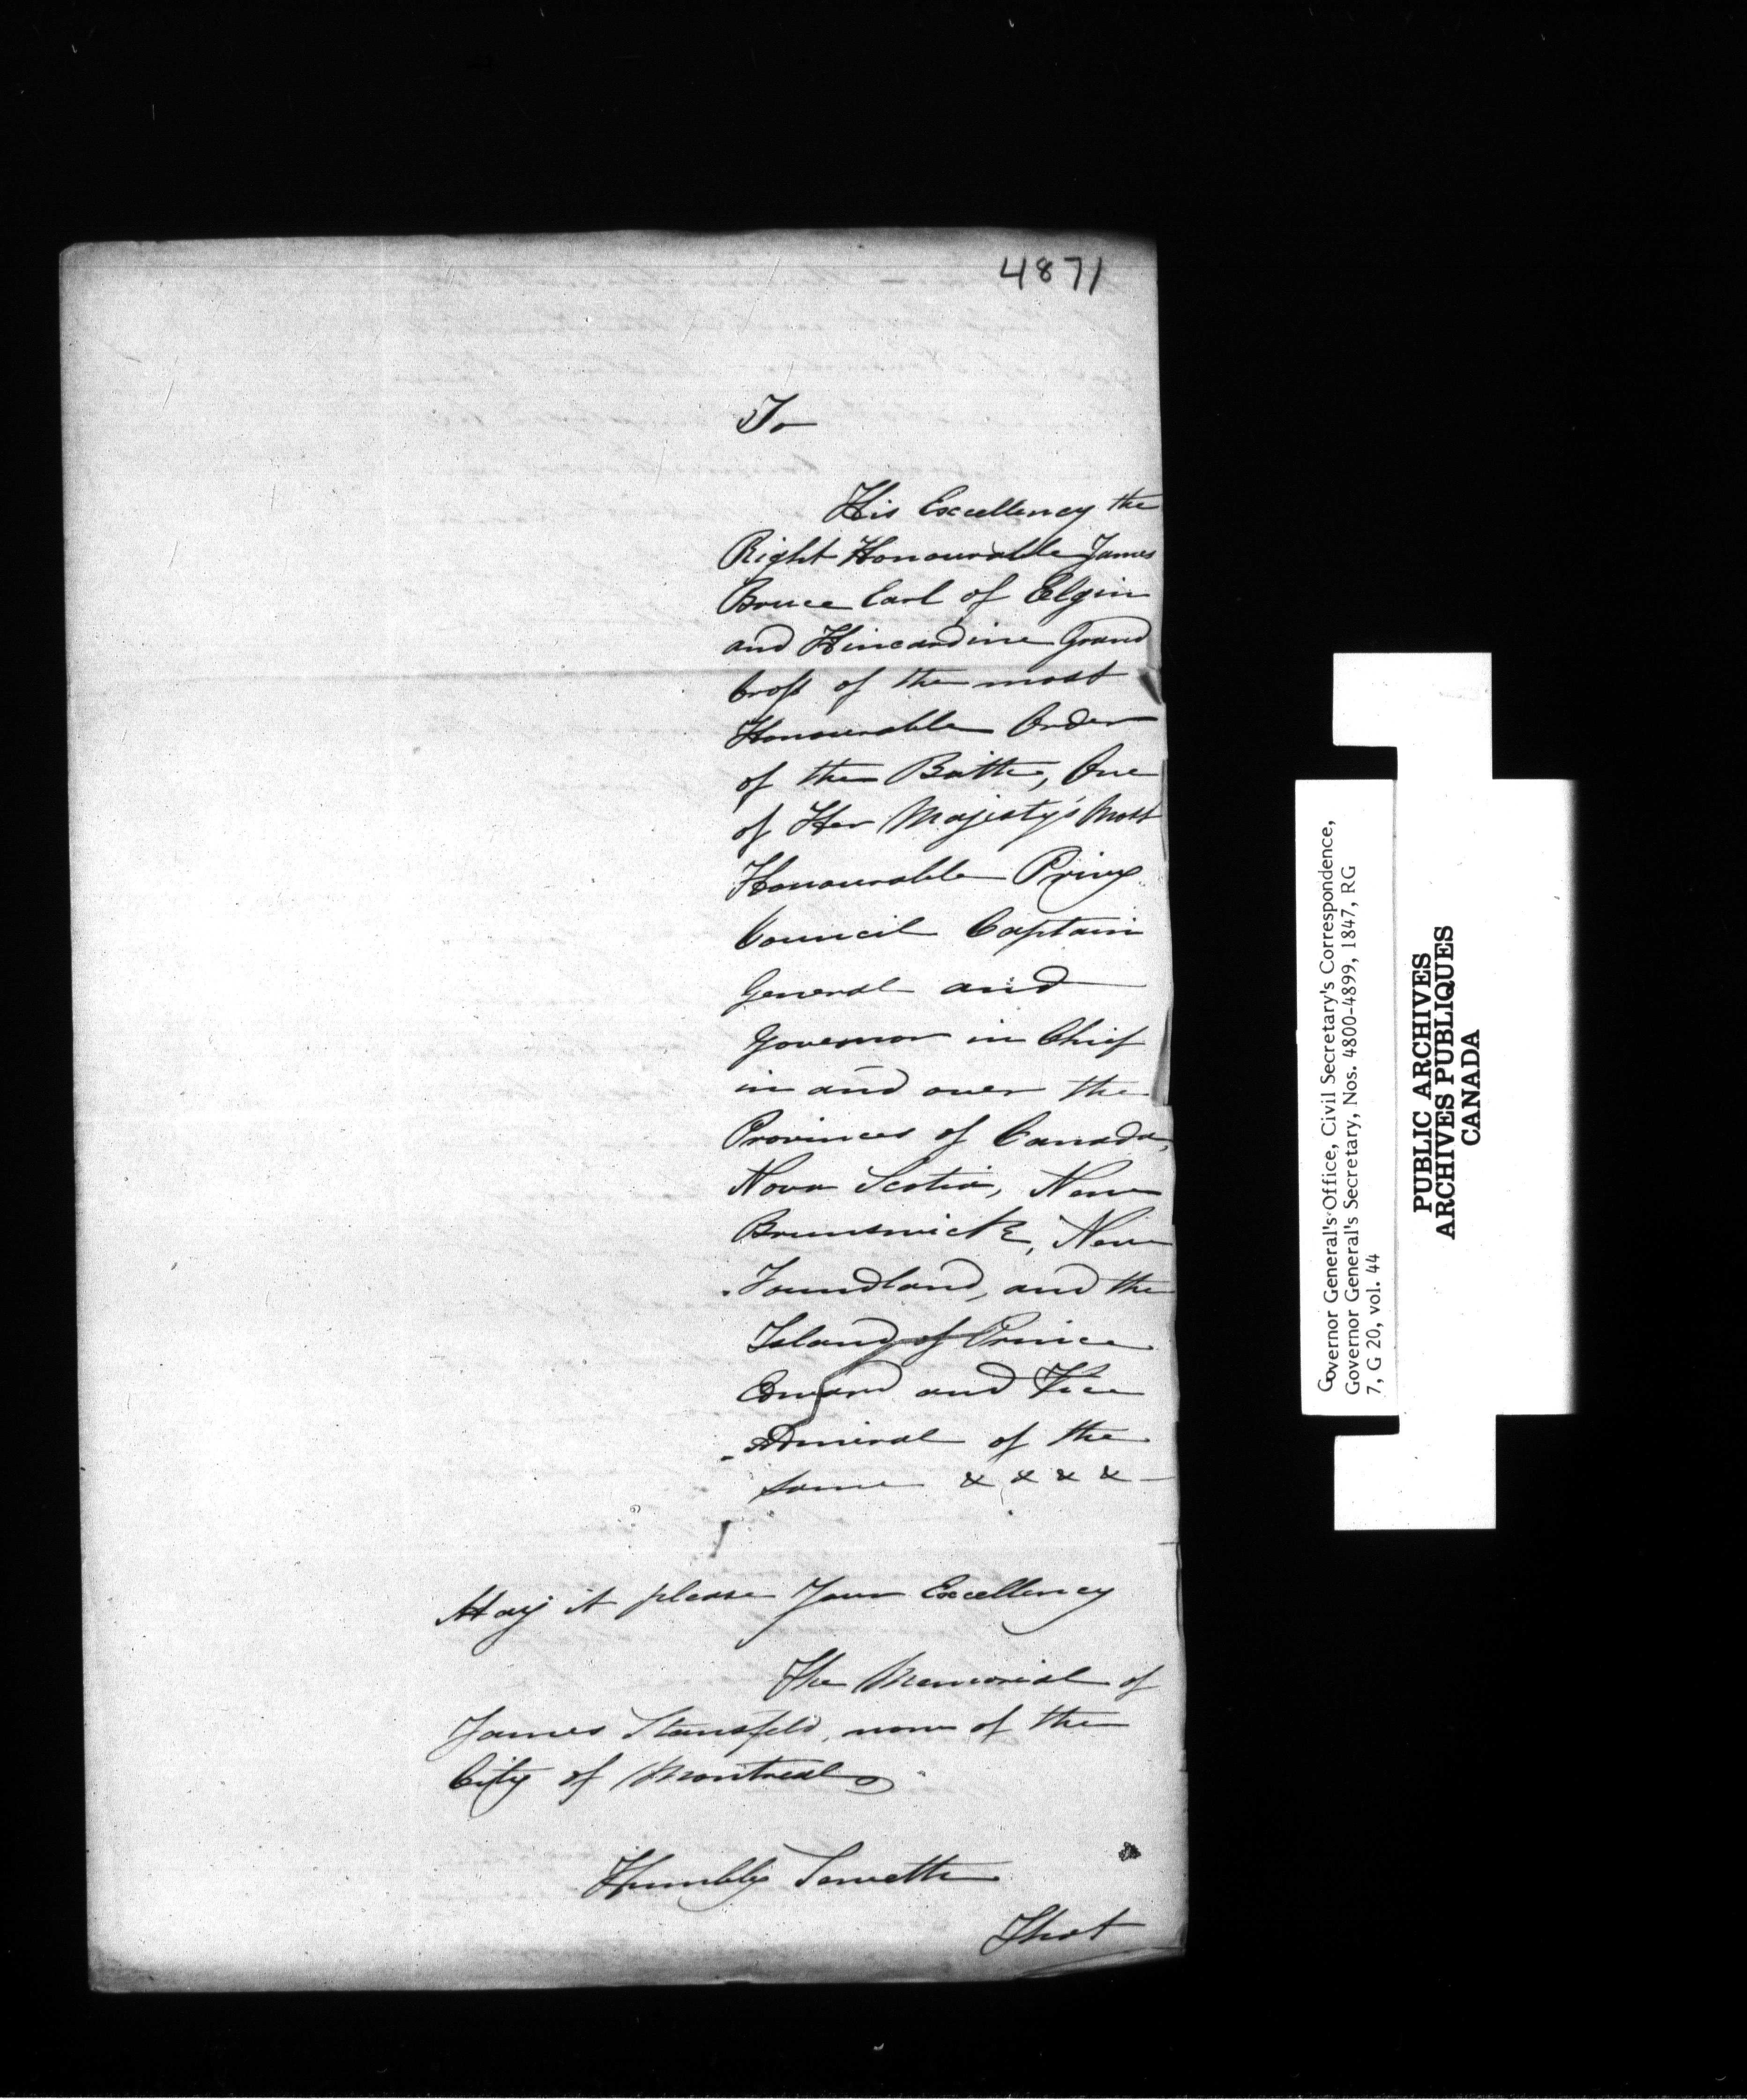 4871
To
His Excellency the
Right Honourable James
Bruce Earl of Elgin
and Kincardine Grand
Cross of the most
Honourable Order
of the Bath, One
of Her Majesty's Most
Honourable Privy
Council Captain
General and
Governor in Chief
in and over the
Provinces of Canada,
Nova Scotia, New
Brunswick, New
Foundland, and the
Island of Prince
Edward and Vice
Admiral of the
same & & & &
May it please Your Excellency
The Memorial of
James Stansfeld, now of the
City of Montreal
Humbly Sheweth
That
Governor General's Office, Civil Secretary's Correspondence,
Governor General's Secretary, Nos. 4800-4899, 1847, RG
7, G 20, vol. 44
PUBLIC ARCHIVES
ARCHIVES PUBLIQUES
CANADA